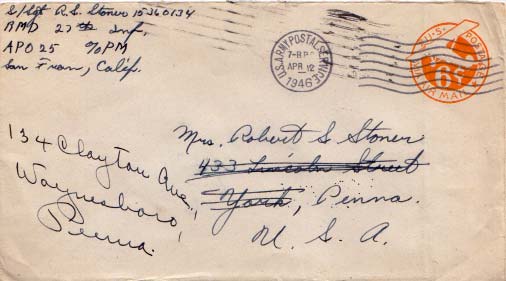 S/Sgt R.S. Stoner 15360134
HMD 27th Inf,
APO 25 % PM
San Fran, Calif.
U.S. ARMY POSTAL SERVICE
APR 12
1946
U.S. POSTAGE
6¢
VIA AIR MAIL
Mrs. Robert S Stoner
433 Lincoln Street
York, Penna.
U. S. A.
134 Clayton Ave.,
Waynesboro,
Penna.